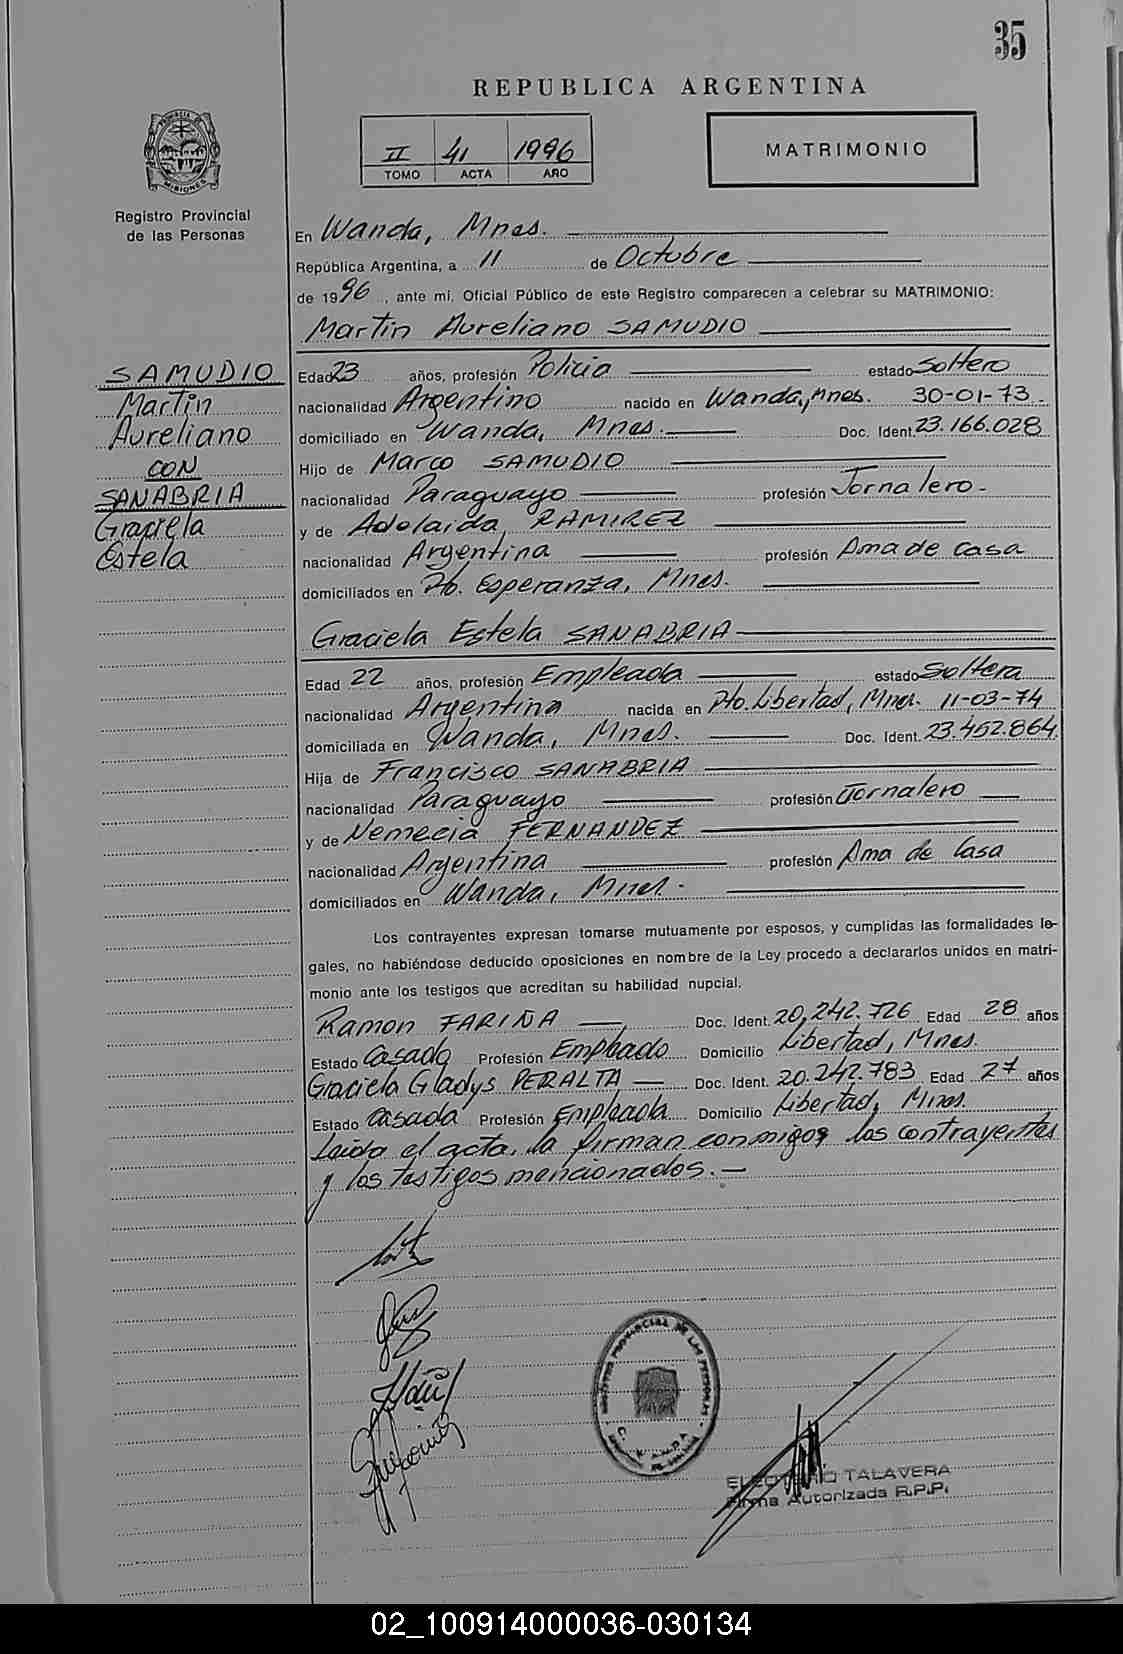 35
REPUBLICA ARGENTINA
II 41 1996
TOMO ACTA AÑO
MATRIMONIO
PROVINCIA DE
MISIONES
Registro Provincial
de las Personas
En Wanda, Mnes.
República Argentina, a 11 de Octubre
de 1996, ante mi, Oficial Público de este Registro comparecen a celebrar su MATRIMONIO:
Martin Aureliano SAMUDIO
SAMUDIO
Martin
Aureliano
CON
SANABRIA
Graciela
Estela
Edad 23 años, profesión Policia estado Soltero
nacionalidad Argentino nacido en Wanda, Mnes. 30-01-73
domiciliado en Wanda, Mnes. Doc. Ident. 23.166.028
Hijo de Marco SAMUDIO
nacionalidad Paraguayo profesión Jornalero
y de Adelaida RAMIREZ
nacionalidad Argentina profesión Ama de casa
domiciliados en Pto. Esperanza, Mnes.
Graciela Estela SANABRIA
Edad 22 años, profesión Empleada estado Soltera
nacionalidad Argentina nacida en Pto. Libertad, Mnes. 11-03-74
domiciliada en Wanda, Mnes. Doc. Ident. 23.452.864
Hija de Francisco SANABRIA
nacionalidad Paraguayo profesión Jornalero
y de Nemecia FERNANDEZ
nacionalidad Argentina profesión Ama de Casa
domiciliados en Wanda, Mnes.
Los contrayentes expresan tomarse mutuamente por esposos, y cumplidas las formalidades le-
gales, no habiéndose deducido oposiciones en nombre de la Ley procedo a declararlos unidos en matri-
monio ante los testigos que acreditan su habilidad nupcial.
Ramon FARIÑA Doc. Ident. 20.242.726 Edad 28 años
Estado Casado Profesión Empleado Domicilio Libertad, Mnes.
Graciela Gladys PERALTA Doc. Ident. 20.242.783 Edad 27 años
Estado Casada Profesión Empleada Domicilio Libertad, Mnes.
Leida el acta, la firman conmigo, los contrayentes
y los testigos mencionados.
REGISTRO PROVINCIAL DE LAS PERSONAS
WANDA
TALAVERA
Firma Autorizada R.P.P.
02_100914000036-030134